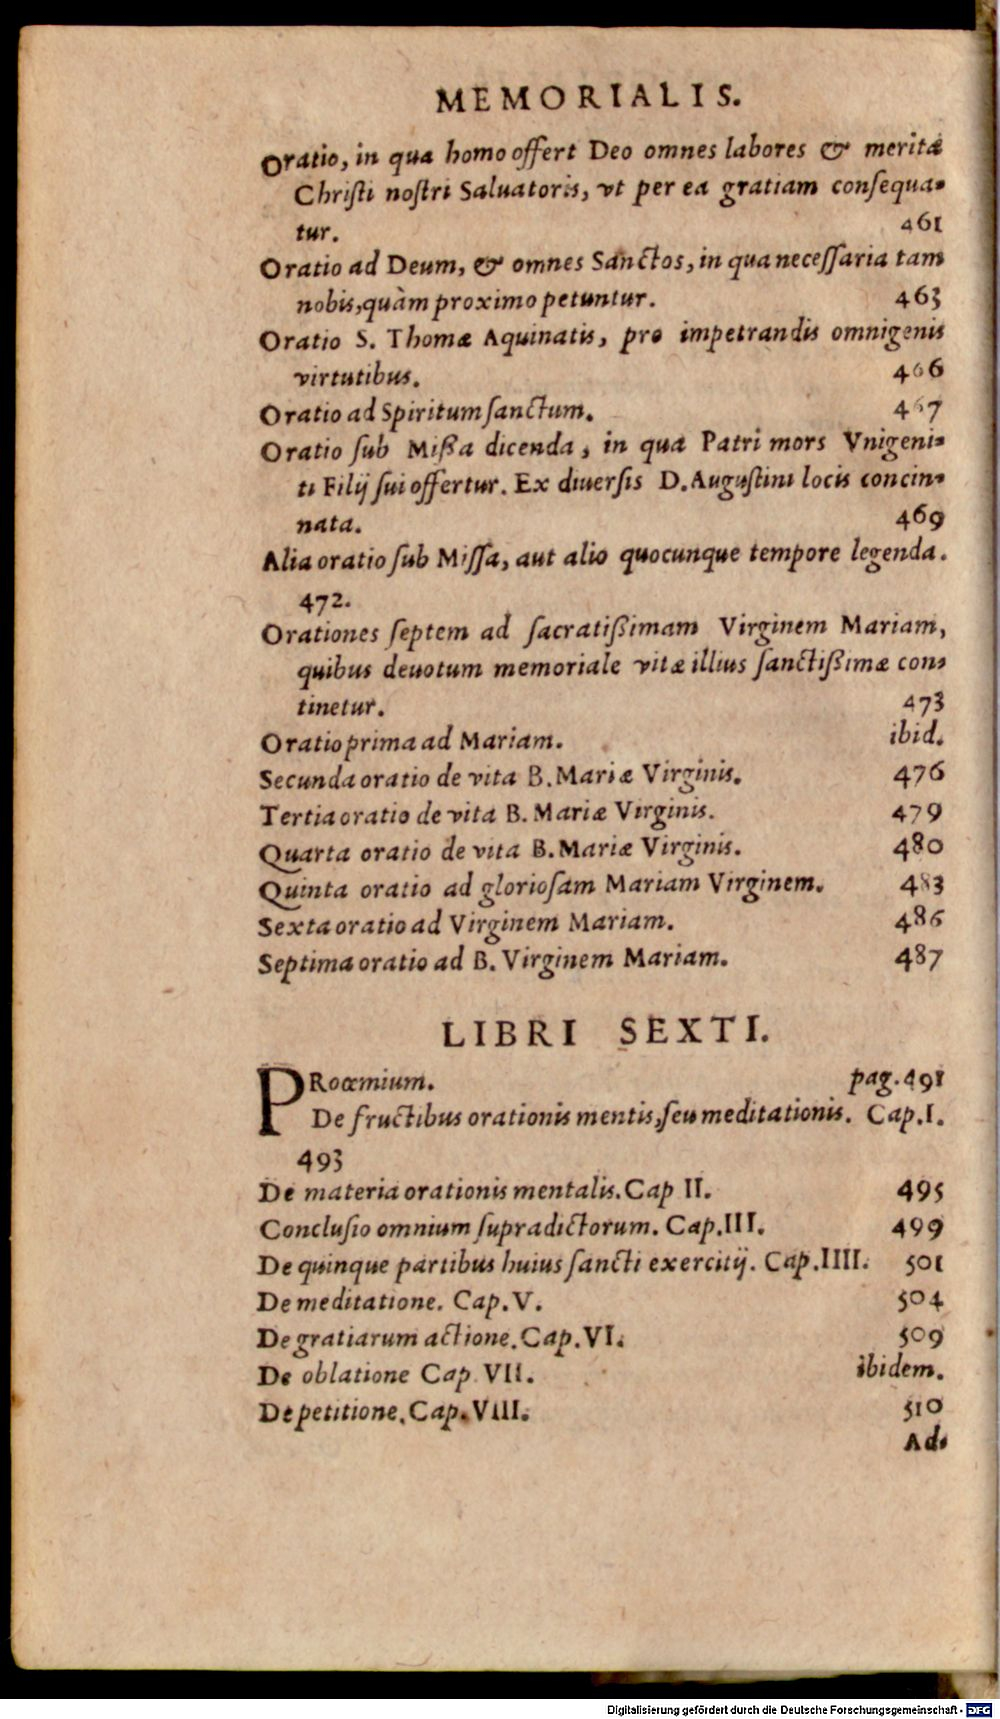 MEMORIALIS.
Oratio, in qua homo offert Deo omnes labores & merita
Chriſti noſtri Saluatoris, vt per ea gratiam conſequa-
tur. 461
Oratio ad Deum, & omnes Sanctos, in qua neceſſaria tam
nobis, quàm proximo petuntur. 463
Oratio S. Thomæ Aquinatis, pro impetrandis omnigenis
virtutibus. 466
Oratio ad Spiritum ſanctum. 467
Oratio ſub Mißa dicenda, in qua Patri mors Vnigeni-
ti Filij ſui offertur. Ex diuerſis D. Auguſtini locis concin-
nata. 469
Alia oratio ſub Miſſa, aut alio quocunque tempore legenda.
472.
Orationes ſeptem ad ſacratißimam Virginem Mariam,
quibus deuotum memoriale vitæ illius ſanctißimæ con-
tinetur. 473
Oratio prima ad Mariam. ibid.
Secunda oratio de vita B. Mariæ Virginis. 476
Tertia oratio de vita B. Mariæ Virginis. 479
Quarta oratio de vita B. Mariæ Virginis. 480
Quinta oratio ad glorioſam Mariam Virginem. 483
Sexta oratio ad Virginem Mariam. 486
Septima oratio ad B. Virginem Mariam. 487
LIBRI SEXTI.
PRoœmium. pag. 491
De fructibus orationis mentis, ſeu meditationis. Cap. I.
493
De materia orationis mentalis. Cap II. 495
Concluſio omnium ſupradictorum. Cap. III. 499
De quinque partibus huius ſancti exercitij. Cap. IIII. 501
De meditatione. Cap. V. 504
De gratiarum actione. Cap. VI. 509
De oblatione Cap VII. ibidem.
De petitione. Cap. VIII. 510
Ad-
Digitalisierung gefördert durch die Deutsche Forschungsgemeinschaft - DFG